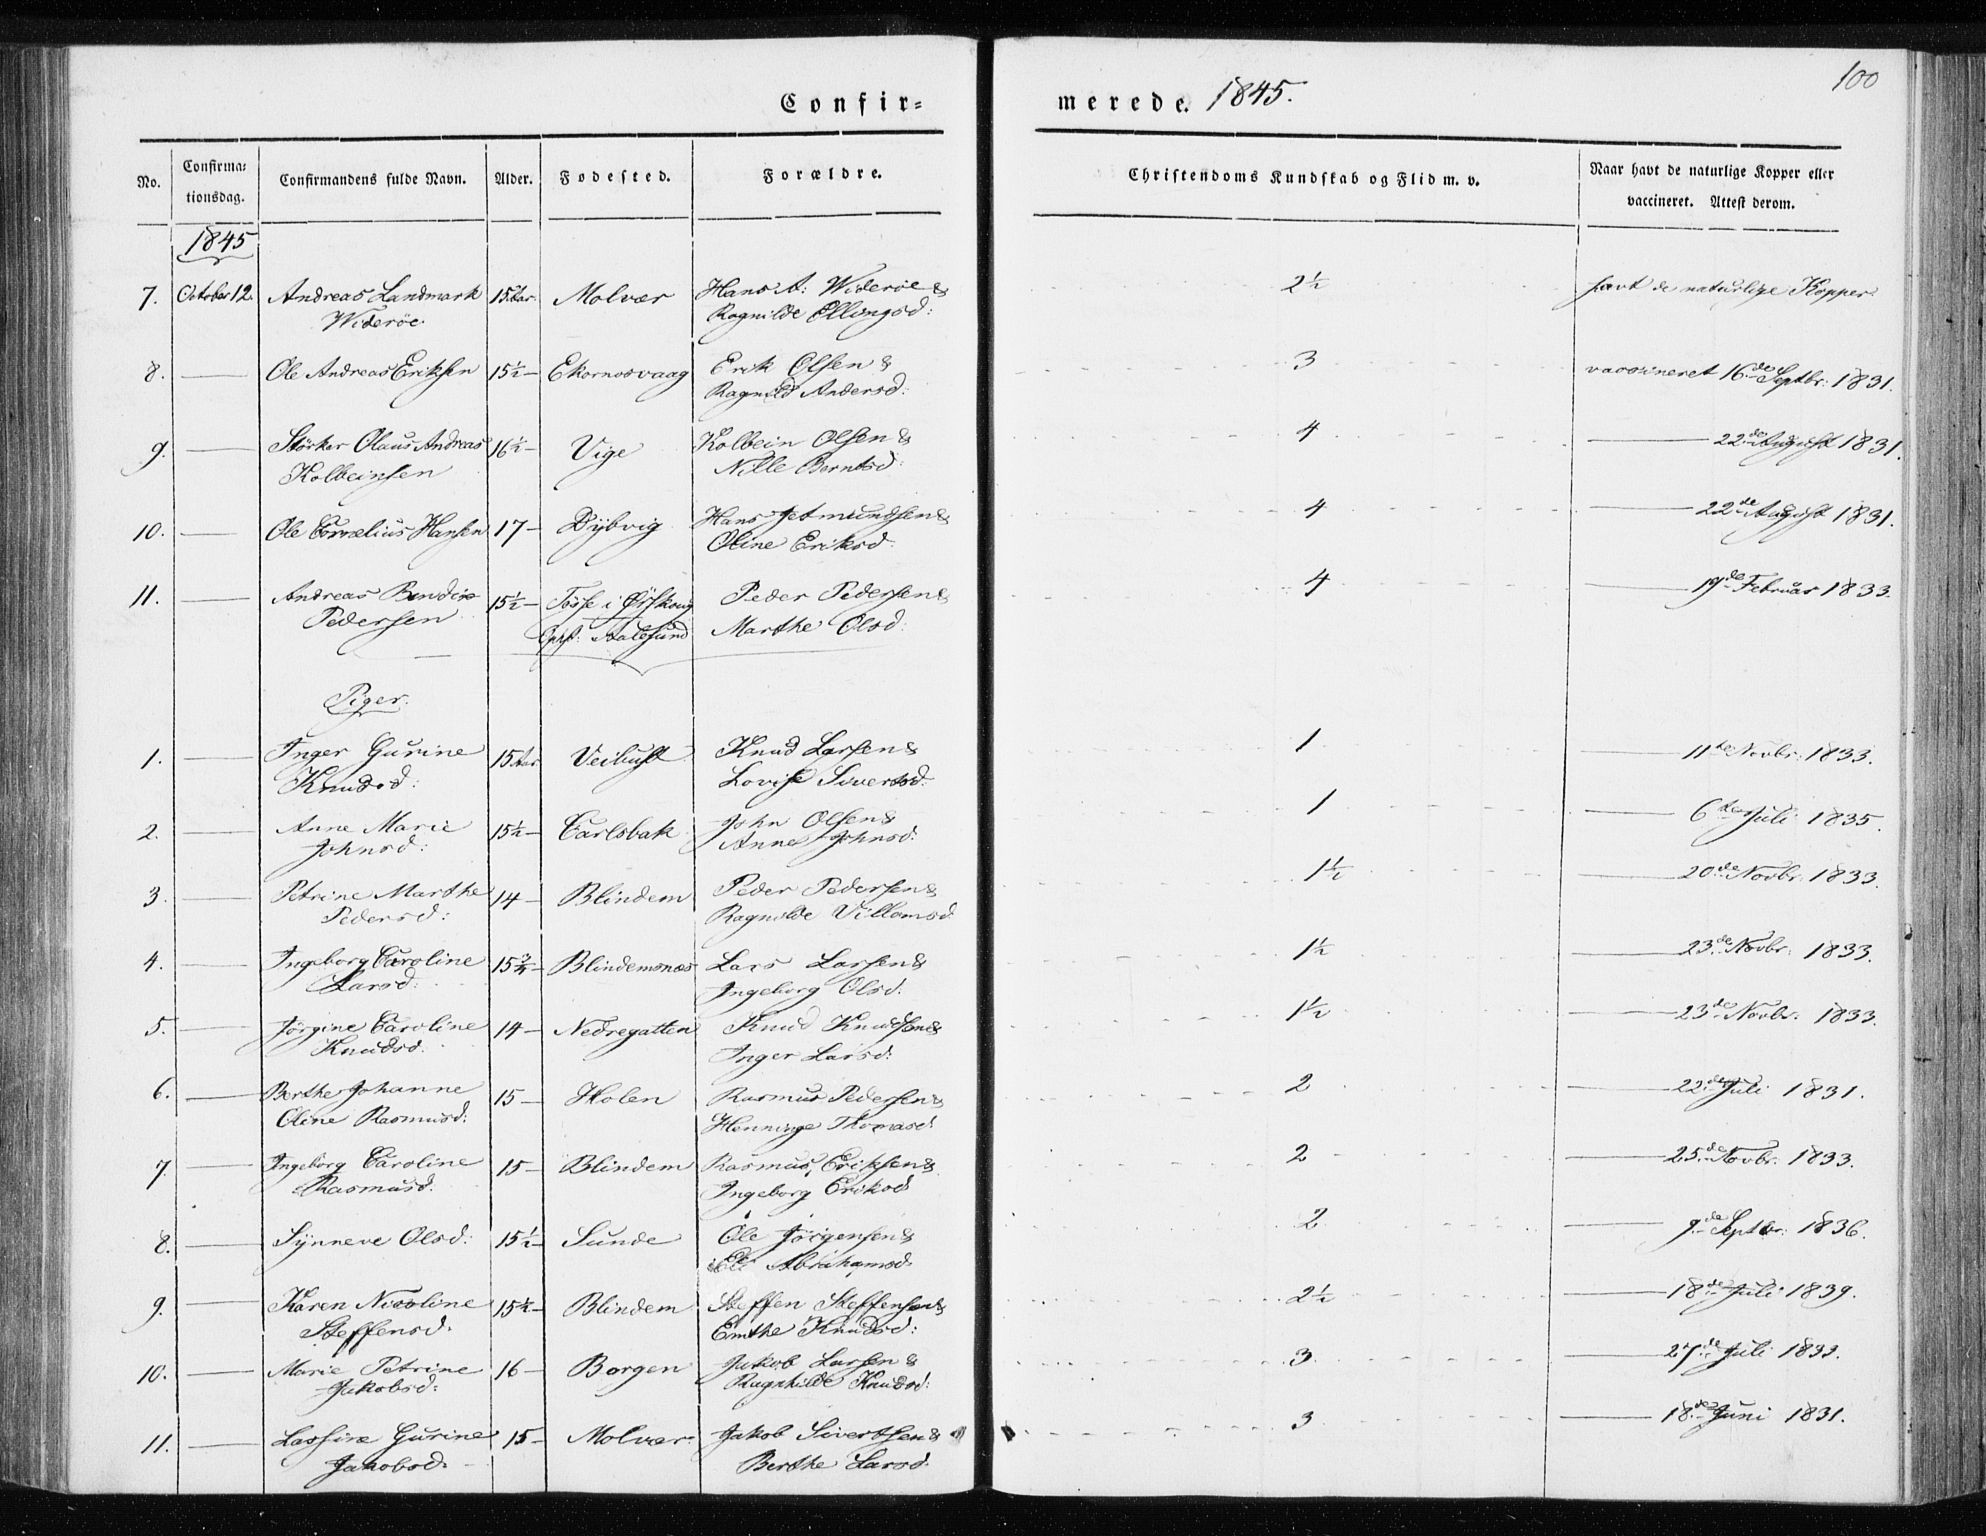 100
Confir=
merede. 1845.
No.
Confirma=
tionsdag.
Confirmandens fulde Navn.
Alder.
Fødested.
Forældre.
Christendoms Kundskab og Flid m. v.
Naar havt de naturlige Kopper eller
vaccineret. Attest derom.
1845
7. October 12. Andreas Landmark 15 Aar. Molvær Hans A: Widerøe & 2½ havt de naturlige Kopper.
Widerøe Ragnilde Ellingsd:
8. — Ole Andreas Eriksen 15½ — Ekornesvaag Erik Olsen & 3 vaccineret 16de Septbr: 1831.
Ragnild Andersd:
9. — Störker Olaus Andreas 16½ — Vige Kolbein Olsen & 4 — 22de August 1831.
Kolbeinsen Nille Berntsd:
10. — Ole Cornelius Hansen 17 — Dybvig Hans Jetmundsen & 4 — 22de August 1831.
Oline Eriksd:
11. — Andreas Bendix 15½ — Tösse i Ørskoug Peder Pedersen & 4 — 19de Februar 1833.
Pedersen Aalesund Marthe Olsd:
Piger.
1. — Inger Gurine 15 Aar Veibust Knud Larsen & 1 — 11te Novbr: 1833.
Knudsd: Lovise Sivertsd:
2. — Anne Marie 15½ — Carlsbak John Olsen & 1 — 6te Juli 1835.
Johnsd: Anne Johnsd:
3. — Petrine Marthe 14 — Blindem Peder Pedersen & 1½ — 20de Novbr. 1833.
Pedersd: Ragnilde Villomsd
4. — Ingeborg Caroline 15¾ — Blindemsnæs Lars Larsen & 1½ — 23de Novbr: 1833.
Larsd: Ingeborg Olsd:
5. — Jørgine Caroline 14 — Nedregatten Knud Knudsen & 1½ — 23de Novbr. 1833.
Knudsd: Inger Larsd:
6. — Berthe Johanne 15 — Holen Rasmus Pedersen & 2 — 22de Juli 1831.
Oline Rasmusd: Henninge Thomasd:
7. — Ingeborg Caroline 15 — Blindem Rasmus Eriksen & 2 — 25de Novbr. 1833.
Rasmusd. Ingeborg Eriksd
8. — Synneve Olsd: 15½ — Sunde Ole Jörgensen & 2 — 9de Septbr: 1836.
Eli Abrahamsd
9. — Karen Nicoline 15½ — Blindem Steffen Steffensen & 2½ — 18de Juli 1839.
Steffensd. Emthe Knudsd:
10. — Marie Petrine 16 — Borgen Jakob Larsen & 3 — 27de Juli 1833.
Jakobsd: Ragnhilde Knudsd:
11. — Lassine Gurine 15 — Molvær Jakob Sivertsen & 3 — 18de Juni 1831.
Jakobsd. Berthe Larsd.